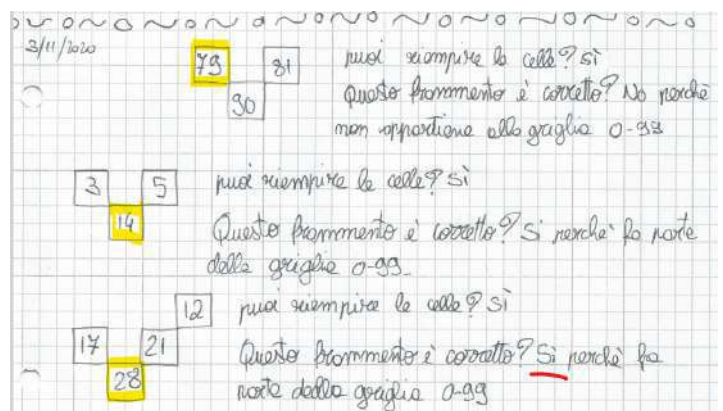 3/11/2020
79 81
90
puoi riempire le celle? sì
Questo frammento è corretto? No perchè
non appartiene alla griglia 0-99
3 5
14
puoi riempire le celle? sì
Questo frammento è corretto? Si perchè fa parte
della griglia 0-99
12
17 21
28
puoi riempire le celle? sì
Questo frammento è corretto? Si perchè fa
parte della griglia 0-99